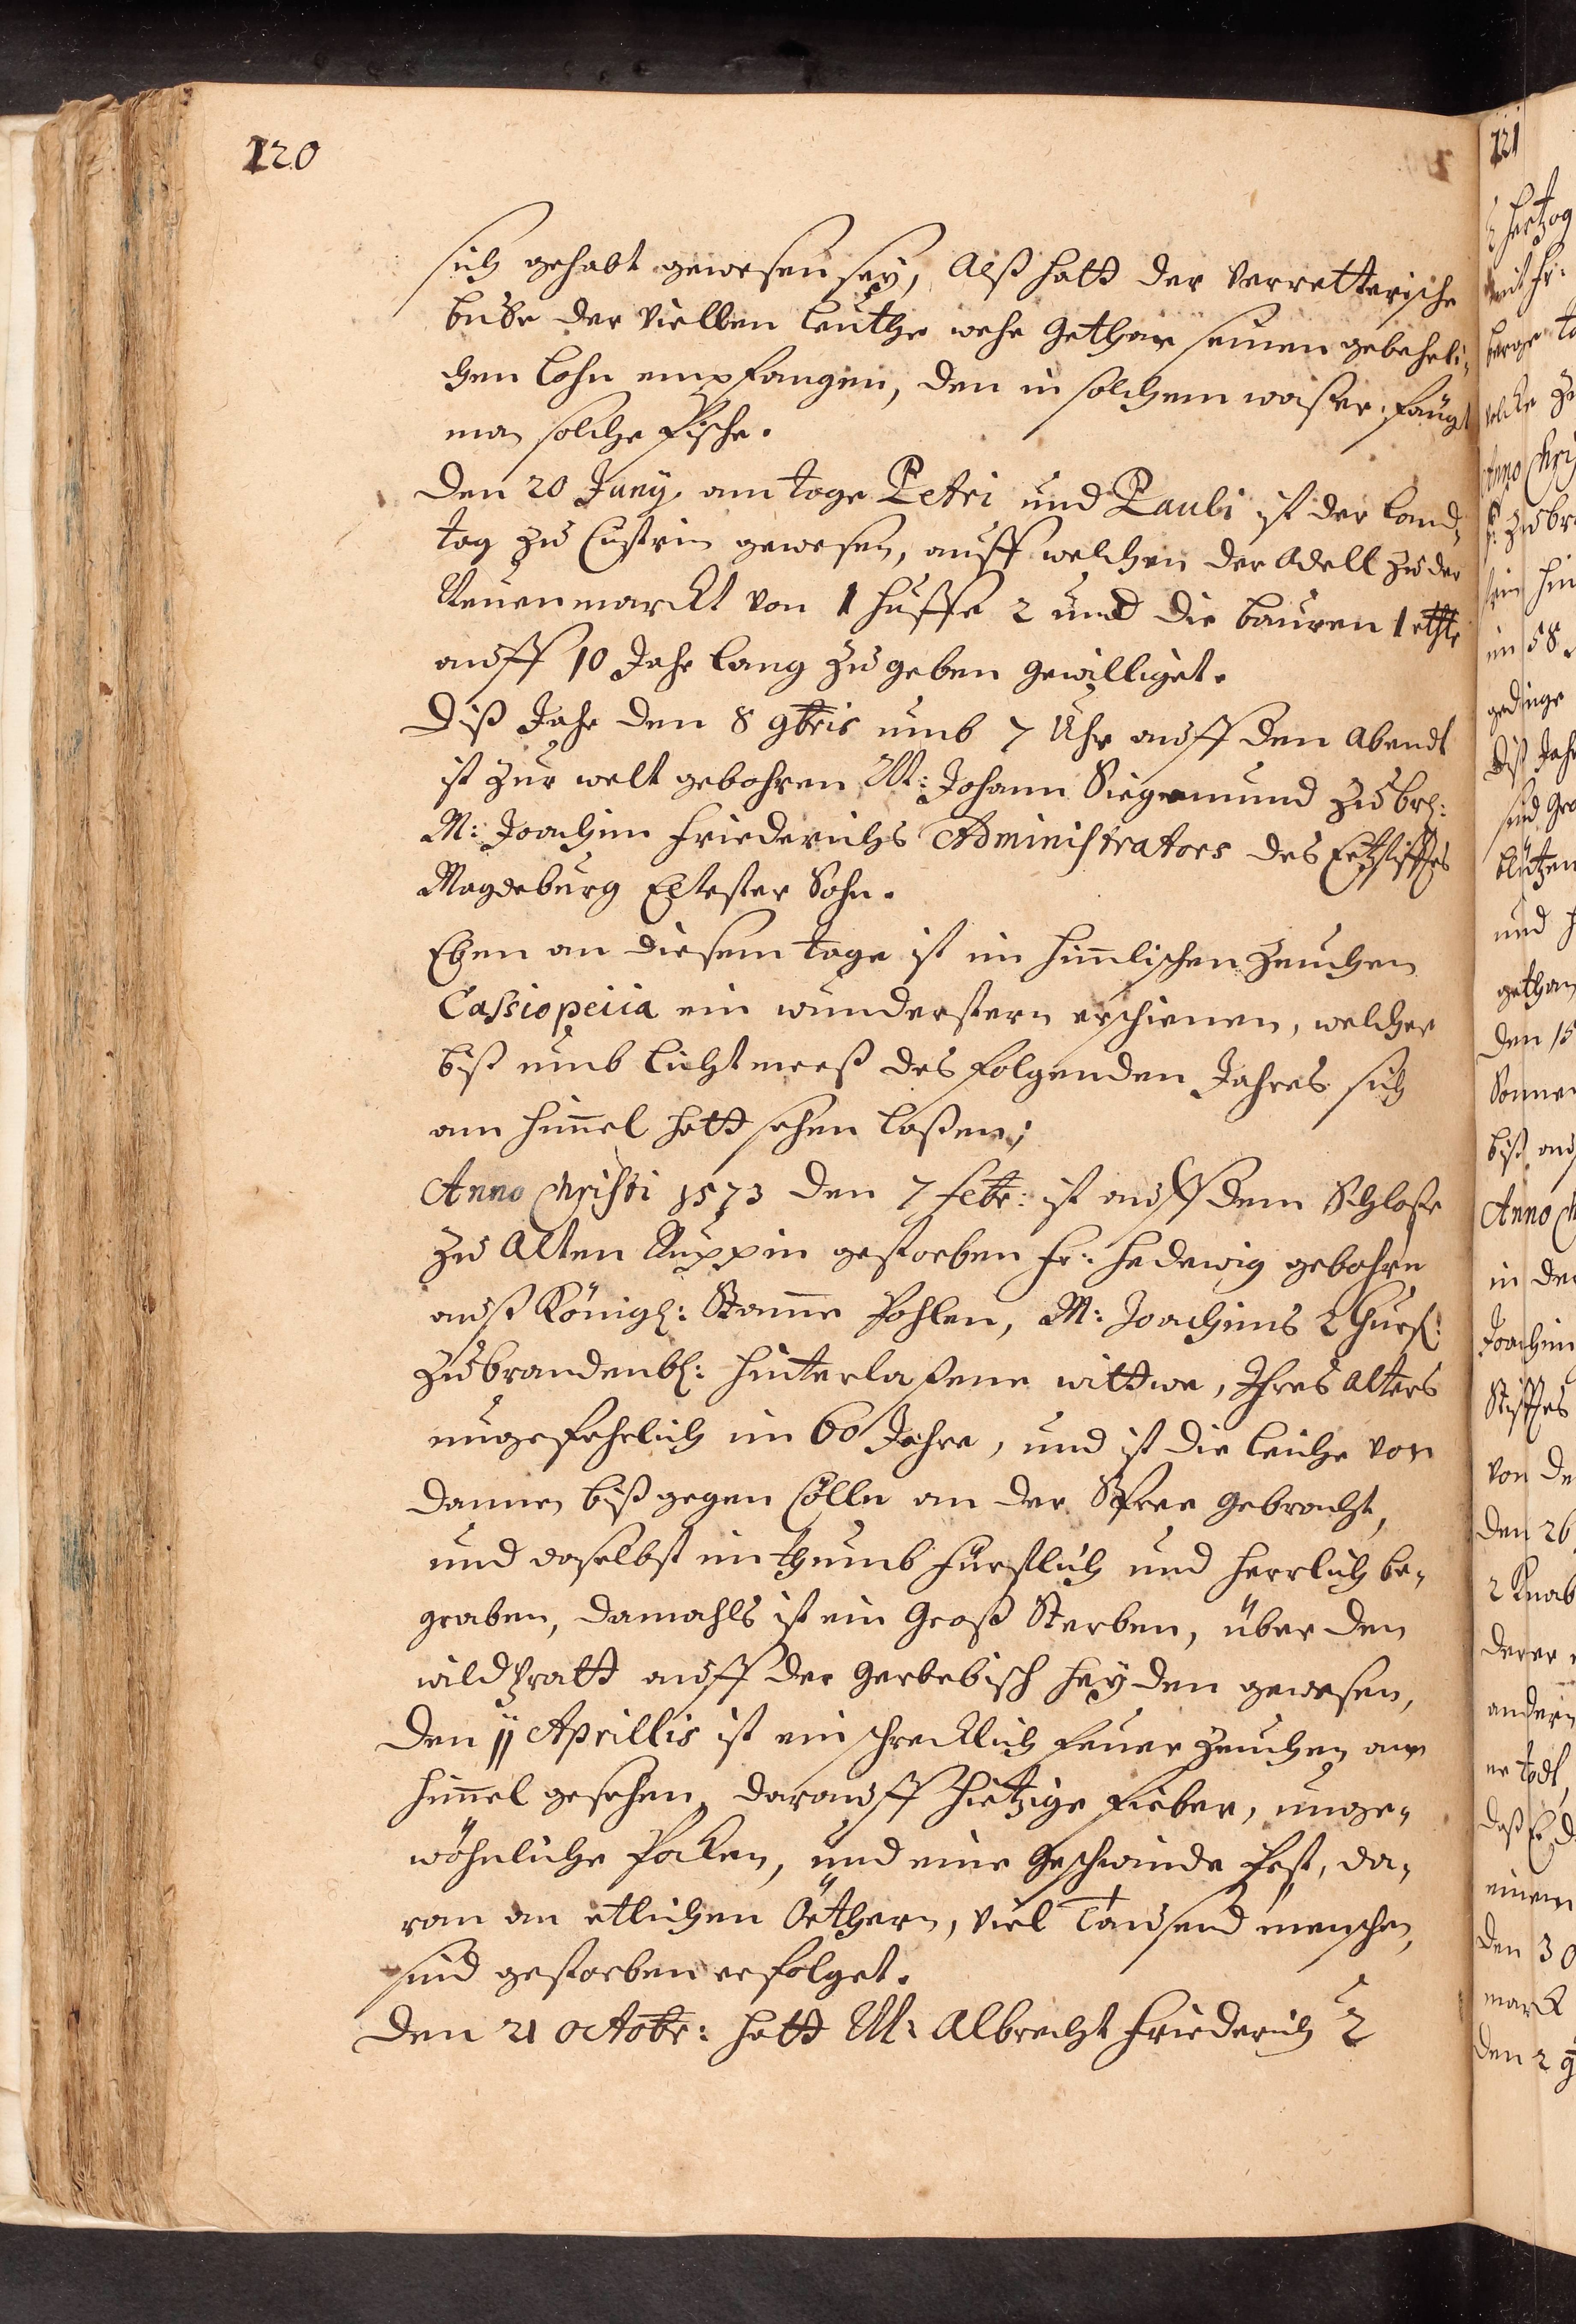 120
sich gehabt gewesen seÿ, Alß hatt der Verretterische
bube der Viellen leuthe wehe Gethan seinen gebehrli,,
chen Lohn empfangen, den in solchem waßer, fängt
man solche Fische.
Den 20 Junÿ. am tage Petri und Pauli ist der land,,
tag zu Cüstrin gewesen, auff welchen der Adell zu der
Neuenmarckt von 1 Huffe 2 und die bauren 1 rthlr
auff 10 Jahr lang zu geben gewilliget.
Diß Jahr den 8 9bris umb 7 Uhr auff den Abendt
ist zur welt gebohren M: Johann Siegemund zu br:
M: Joachim Friederichs Administrators des Ertzstifftes
Magdeburg Eltester Sohn.
Eben an diesem tage ist im Himlischen Zeichen
Cassiopeiia ein wunderstern erschienen, welcher
biß umb lichtmeeß des folgenden Jahres sich
am Himel hatt sehen laßen;
Anno Christi 1573 den 7 Febr: ist auff dem Schloße
zu Alten Ruppin gestorben Fr: Hedewig gebohrn
auß Königl: Stamme Pohlen, M: Joachims 2 Churf:
zu brandenb: hinterlaßene wittwe, Ihres Alters
ungefehrlich im 60 Jahre, und ist die Leiche von
dannen biß gegen Cölln an der Spree gebracht,
und daselbst im thumb Fürstlich und Herrlich be,,
graben, damahls ist ein Groß Sterben, über den
wildpratt auff der Heÿden gewesen,
Den 11 Aprillis ist ein schrecklich Feuer Zeichen am
Himel gesehen, darauff Hietzige Fieber, unge,,
wöhnliche Pocken, und eine Geschwinde Pest, da,,
ran an etlichen Örthern, viel Tausend menschen,
sind gestorben erfolget.
Den 21 Octobr: hatt M: Albrecht Friederich 2
121
Hertzog
mit Fr:
berge
welche
Anno Chri
zu br
im 58
gedinge
Diß Jahr
sind
und
gethan
den 15
Sonnen
biß auf
Anno
in der
Joachim
Stifftes
von
den 26
2 Knab
derer
andern
er todt,
daß
einem
den 30
marck
den 2 9